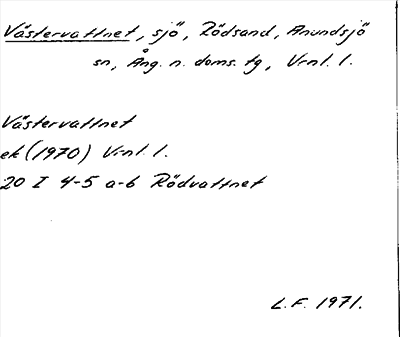 Västervattnet, sjö, Rödsand, Anundsjö
sn, Ång. n. doms. tg, Vrnl. l.
Västervattnet
ek (1970) Vrnl. l.
20 I 4-5 a-b Rödvattnet
L.F. 1971.